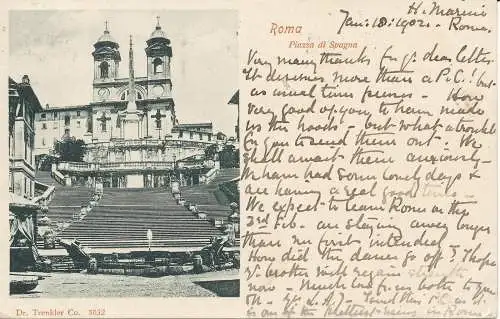 Roma
Piazza di Spagna
H. Marini
Jan: 18. 1902. Roma.
Very many thanks for yr. dear letter
It deserves more than a P.C! but
as usual time presses - How
very good of you to have made
us the hoods - but what a trouble
for you to send them out - We
shall await them anxiously -
We have had some lovely days &
are having a real good time -
We expect to leave Rome on the
3rd Feb. - are staying away longer
than we first intended -
How did the dance go off? I hope
yr. brother will regain strength
now - Much love from both to you
is one of the
Dr. Trenkler Co. 3032